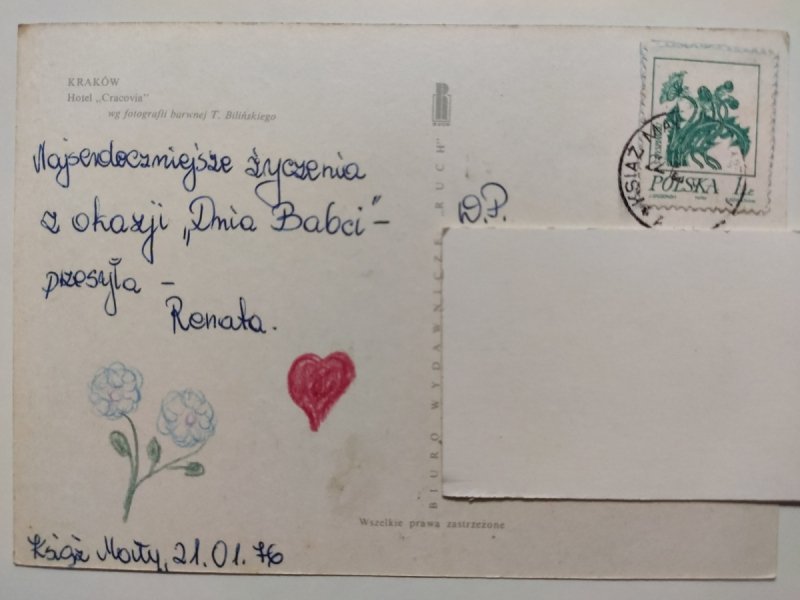 KRAKÓW
Hotel „Cracovia”
wg fotografii barwnej T. Bilińskiego
Najserdeczniejsze życzenia
z okazji „Dnia Babci” –
przesyła –
Renata.
Książ Mały, 21.01.76
BIURO WYDAWNICZE „RUCH”
Wszelkie prawa zastrzeżone
W.P.
POLSKA 1 ZŁ
KSIĄŻ MAŁY